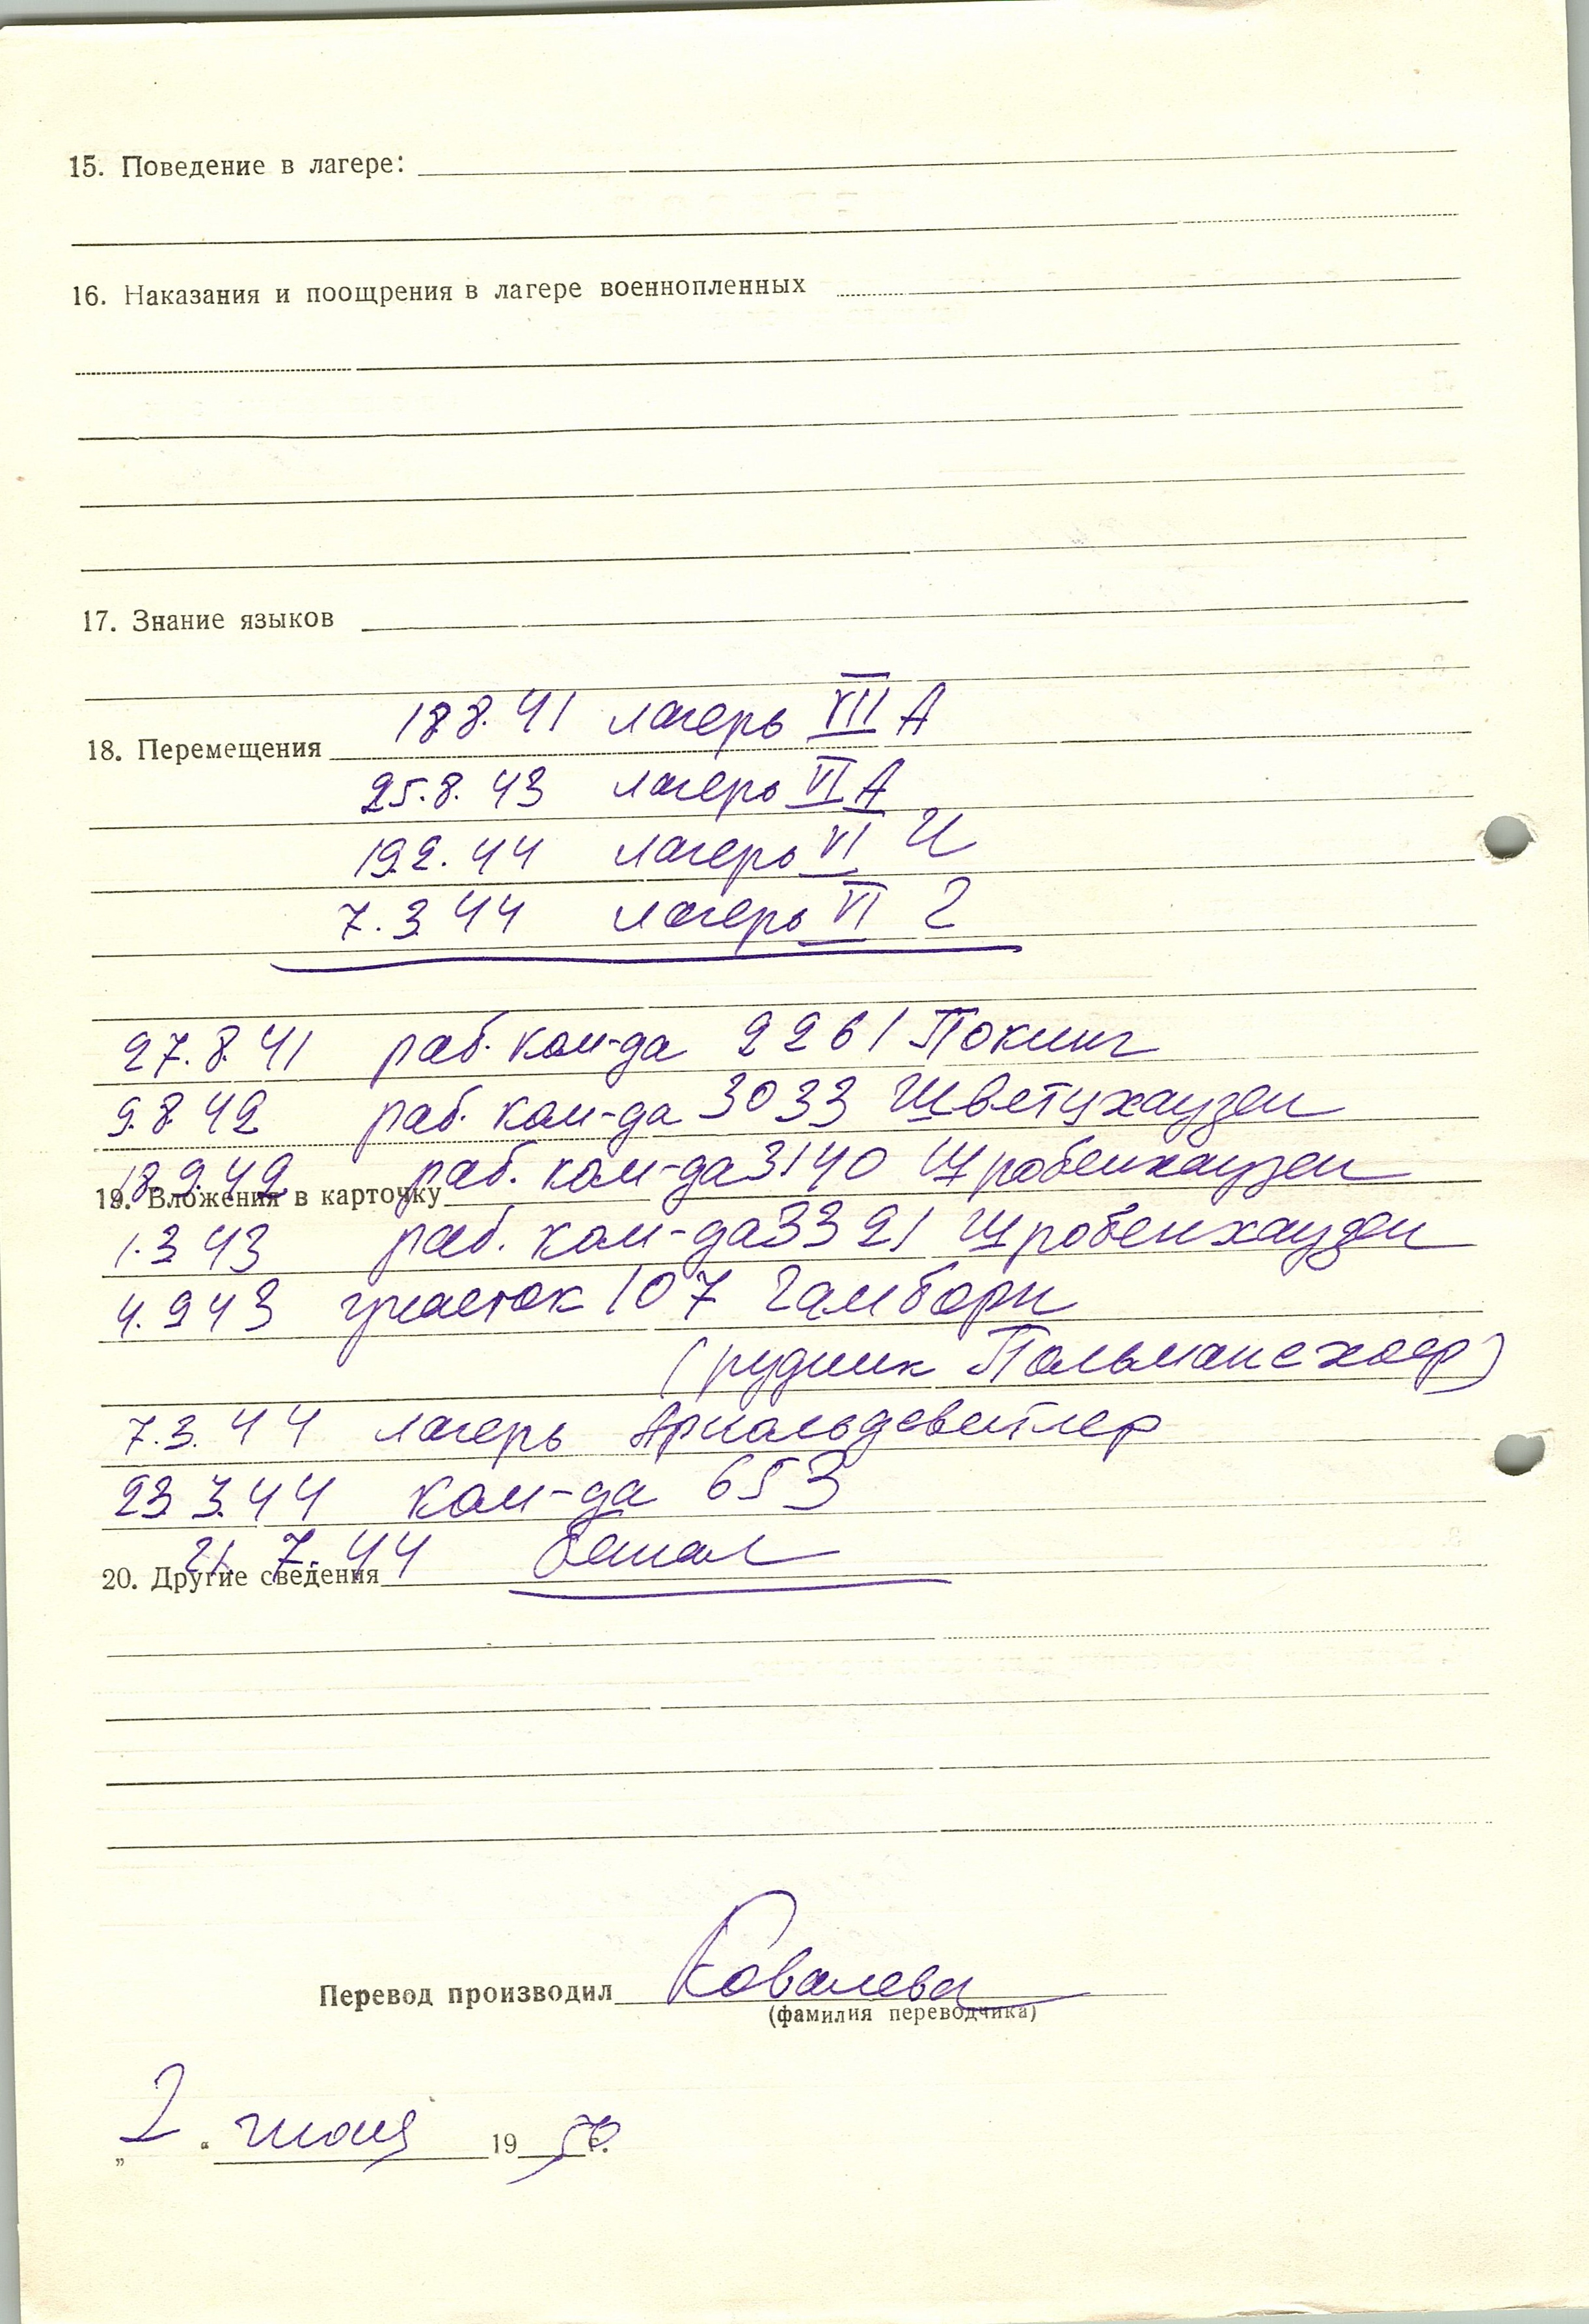 15. Поведение в лагере:
16. Наказания и поощрения в лагере военнопленных
17. Знание языков
18.8.41 лагерь VII А
18. Перемещения
25.8.43 лагерь VI А
19.2.44 лагерь VI И
7.3.44 лагерь VI Г
27.8.41 раб. ком-да 2261 Покинг
9.8.42 раб. ком-да 3033
18.9.42 раб. ком-да 3140 Шробенхаузен
19. Вложения в карточку
1.3.43 раб. ком-да 3321 Шробенхаузен
4.9.43 участок 107 Гамборн
(рудник
7.3.44 лагерь Арнольдсвейлер
23.3.44 ком-да 653
21.7.44 бежал
20. Другие сведения
Перевод производил Ковалева
(фамилия переводчика)
„2“ 19 50 г.